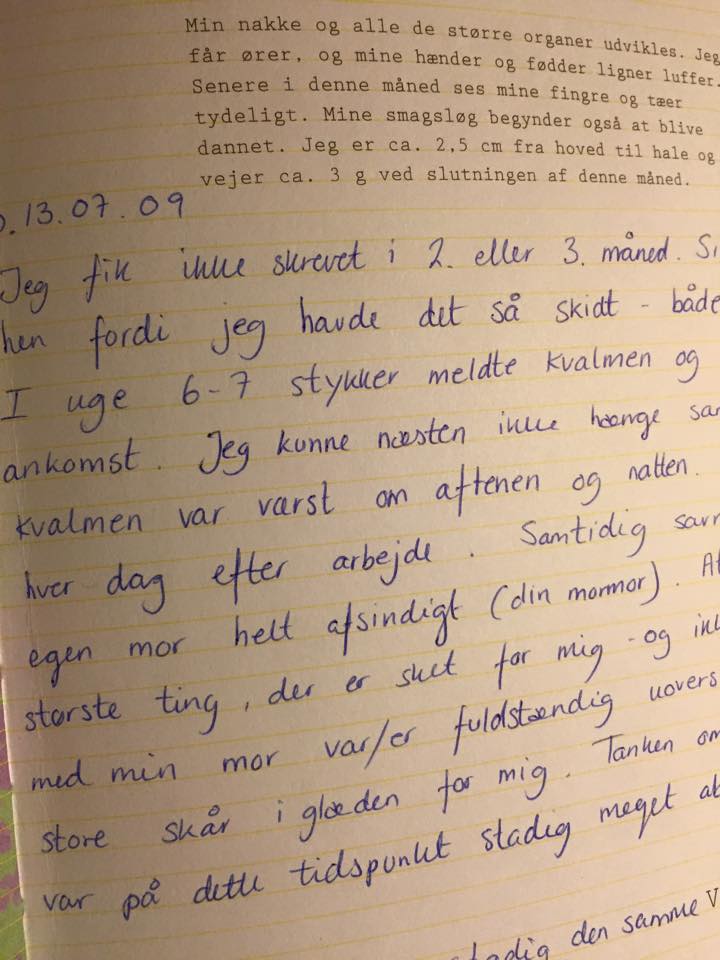 Min nakke og alle de større organer udvikles. Jeg
får ører, og mine hænder og fødder ligner luffer.
Senere i denne måned ses mine fingre og tæer
tydeligt. Mine smagsløg begynder også at blive
dannet. Jeg er ca. 2,5 cm fra hoved til hale og
vejer ca. 3 g ved slutningen af denne måned.
.13.07.09
Jeg fik ikke skrevet i 2. eller 3. måned. Si
hen fordi jeg havde det så skidt - både
I uge 6-7 stykker meldte kvalmen og
ankomst. Jeg kunne næsten ikke hænge sam
kvalmen var værst om aftenen og natten.
hver dag efter arbejde. Samtidig sav
egen mor helt afsindigt (din mormor). At
største ting, der er sket for mig - og ik
med min mor var/er fuldstændig uovers
store skår i glæden for mig. Tanken om
var på dette tidspunkt stadig meget ab
stadig den samme V